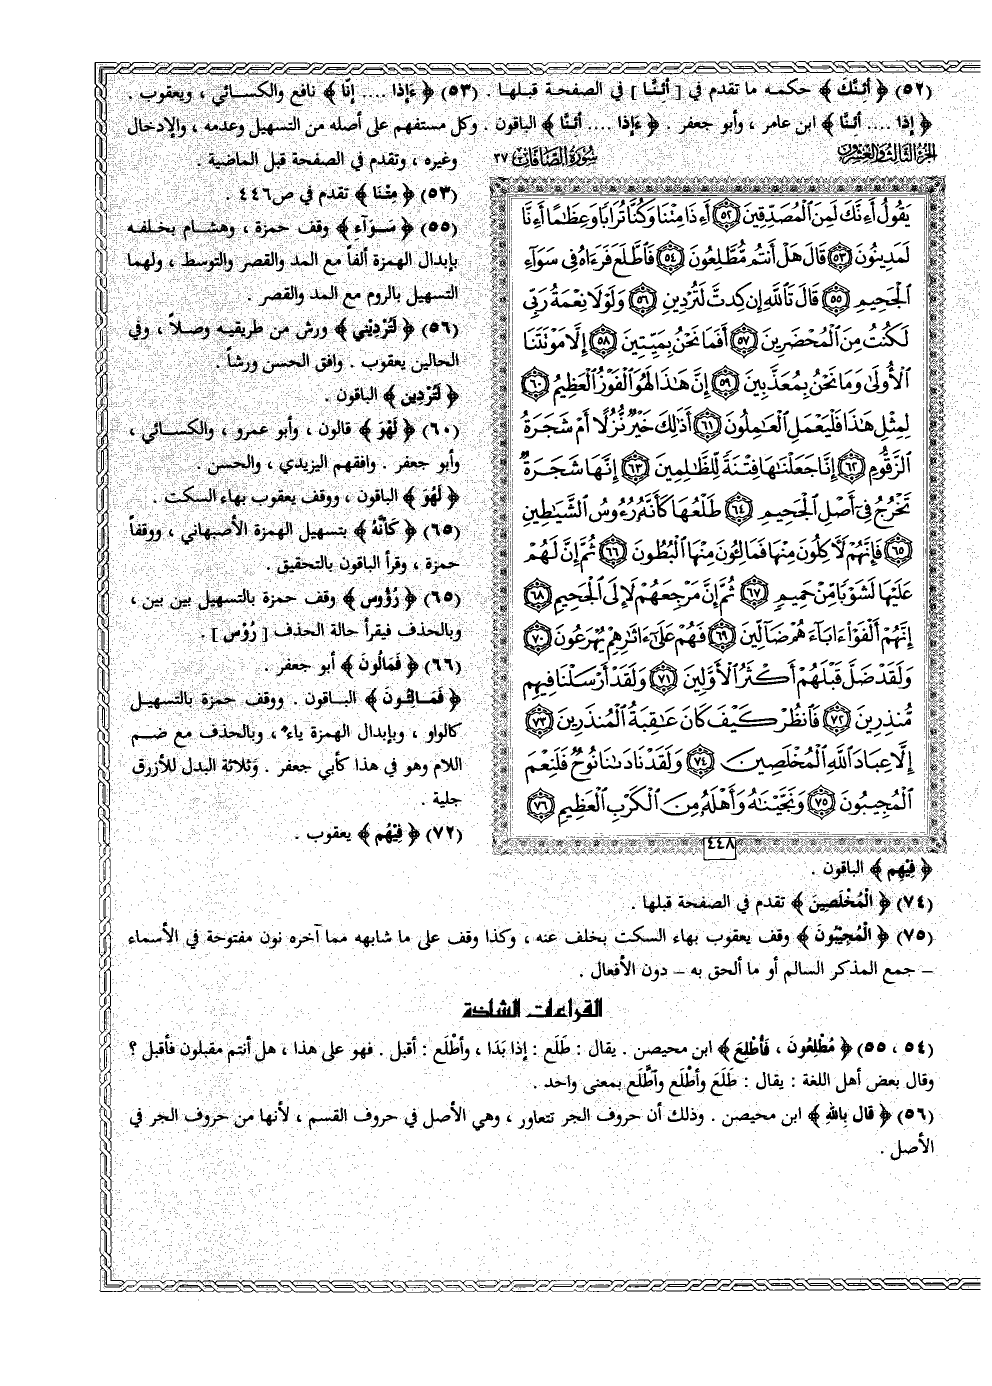 (٥٢) ﴿ أَئِنَّكَ ﴾ حكمه ما تقدم في [ أَئِنَّا ] في الصفحة قبلها . (٥٣) ﴿ ءَإذا .... إنّا ﴾ نافع والكسائي ، ويعقوب .
﴿ إذا .... أئنا ﴾ ابن عامر ، وأبو جعفر . ﴿ ءَإذا .... أئنا ﴾ الباقون . وكل مستفهم على أصله من التسهيل وعدمه ، والإدخال
وغيره ، وتقدم في الصفحة قبل الماضية .
(٥٣) ﴿ مِتْنَا ﴾ تقدم في ص٤٤٦ .
(٥٥) ﴿ سَوَآء ﴾ وقف حمزة ، وهشام بخلفه
بإبدال الهمزة ألفاً مع المد والقصر والتوسط ، ولهما
التسهيل بالروم مع المد والقصر .
(٥٦) ﴿ لَتُرْدِيْنِي ﴾ ورش من طريقيه وصلاً ، وفي
الحالين يعقوب . وافق الحسن ورشاً .
﴿ لَتُرْدِين ﴾ الباقون .
(٦٠) ﴿ لَهْوَ ﴾ قالون ، وأبو عمرو ، والكسائي ،
وأبو جعفر . وافقهم اليزيدي ، والحسن .
﴿ لَهُوَ ﴾ الباقون ، ووقف يعقوب بهاء السكت .
(٦٥) ﴿ كَأنَّهُ ﴾ بتسهيل الهمزة الأصبهاني ، ووقفاً
حمزة ، وقرأ الباقون بالتحقيق .
(٦٥) ﴿ رُؤُوس ﴾ وقف حمزة بالتسهيل بين بين ،
وبالحذف فيقرأ حالة الحذف [ رُوْس ] .
(٦٦) ﴿ فَمَالُونَ ﴾ أبو جعفر .
﴿ فَمَـالِئـُونَ ﴾ الباقون . ووقف حمزة بالتسهيل
كالواو ، وبإبدال الهمزة ياء ، وبالحذف مع ضم
اللام وهو في هذا كأبي جعفر . وثلاثة البدل للأزرق
جلية .
(٧٢) ﴿ فِيْهُم ﴾ يعقوب .
الجزء الثالث والعشرون
سورة الصافات ٣٧
يَقُولُ أَءِنَّكَ لَمِنَ ٱلْمُصَدِّقِينَ ٥٢ أَءِذَا مِتْنَا وَكُنَّا تُرَابًا وَعِظَـٰمًا أَءِنَّا
لَمَدِينُونَ ٥٣ قَالَ هَلْ أَنتُم مُّطَّلِعُونَ ٥٤ فَٱطَّلَعَ فَرَءَاهُ فِى سَوَآءِ
ٱلْجَحِيمِ ٥٥ قَالَ تَٱللَّهِ إِن كِدتَّ لَتُرْدِينِ ٥٦ وَلَوْلَا نِعْمَةُ رَبِّى
لَكُنتُ مِنَ ٱلْمُحْضَرِينَ ٥٧ أَفَمَا نَحْنُ بِمَيِّتِينَ ٥٨ إِلَّا مَوْتَتَنَا
ٱلْأُولَىٰ وَمَا نَحْنُ بِمُعَذَّبِينَ ٥٩ إِنَّ هَـٰذَا لَهُوَ ٱلْفَوْزُ ٱلْعَظِيمُ ٦٠
لِمِثْلِ هَـٰذَا فَلْيَعْمَلِ ٱلْعَـٰمِلُونَ ٦١ أَذَٰلِكَ خَيْرٌ نُّزُلًا أَمْ شَجَرَةُ
ٱلزَّقُّومِ ٦٢ إِنَّا جَعَلْنَـٰهَا فِتْنَةً لِّلظَّـٰلِمِينَ ٦٣ إِنَّهَا شَجَرَةٌ
تَخْرُجُ فِىٓ أَصْلِ ٱلْجَحِيمِ ٦٤ طَلْعُهَا كَأَنَّهُۥ رُءُوسُ ٱلشَّيَـٰطِينِ
٦٥ فَإِنَّهُمْ لَـَٔاكِلُونَ مِنْهَا فَمَالِـُٔونَ مِنْهَا ٱلْبُطُونَ ٦٦ ثُمَّ إِنَّ لَهُمْ
عَلَيْهَا لَشَوْبًا مِّنْ حَمِيمٍ ٦٧ ثُمَّ إِنَّ مَرْجِعَهُمْ لَإِلَى ٱلْجَحِيمِ ٦٨
إِنَّهُمْ أَلْفَوْا۟ ءَابَآءَهُمْ ضَآلِّينَ ٦٩ فَهُمْ عَلَىٰٓ ءَاثَـٰرِهِمْ يُهْرَعُونَ ٧٠
وَلَقَدْ ضَلَّ قَبْلَهُمْ أَكْثَرُ ٱلْأَوَّلِينَ ٧١ وَلَقَدْ أَرْسَلْنَا فِيهِم
مُّنذِرِينَ ٧٢ فَٱنظُرْ كَيْفَ كَانَ عَـٰقِبَةُ ٱلْمُنذَرِينَ ٧٣
إِلَّا عِبَادَ ٱللَّهِ ٱلْمُخْلَصِينَ ٧٤ وَلَقَدْ نَادَىٰنَا نُوحٌ فَلَنِعْمَ
ٱلْمُجِيبُونَ ٧٥ وَنَجَّيْنَـٰهُ وَأَهْلَهُۥ مِنَ ٱلْكَرْبِ ٱلْعَظِيمِ ٧٦
٤٤٨
﴿ فِيْهِم ﴾ الباقون .
(٧٤) ﴿ الْمُخْلَصِينَ ﴾ تقدم في الصفحة قبلها .
(٧٥) ﴿ الْمُجِيْبُونَ ﴾ وقف يعقوب بهاء السكت بخلف عنه ، وكذا وقف على ما شابهه مما آخره نون مفتوحة في الأسماء
– جمع المذكر السالم أو ما ألحق به – دون الأفعال .
القراءات الشاذة
(٥٤ ، ٥٥) ﴿ مُطْلِعُونَ ، فَأُطْلِعَ ﴾ ابن محيصن . يقال : طَلَع : إذا بَدَا ، وأَطْلَع : أقبل . فهو على هذا ، هل أنتم مقبلون فأقبل ؟
وقال بعض أهل اللغة : يقال : طَلَعَ وأَطْلَع واَطَّلَع بمعنى واحد .
(٥٦) ﴿ قال بِاللهِ ﴾ ابن محيصن . وذلك أن حروف الجر تتعاور ، وهي الأصل في حروف القسم ، لأنها من حروف الجر في
الأصل .